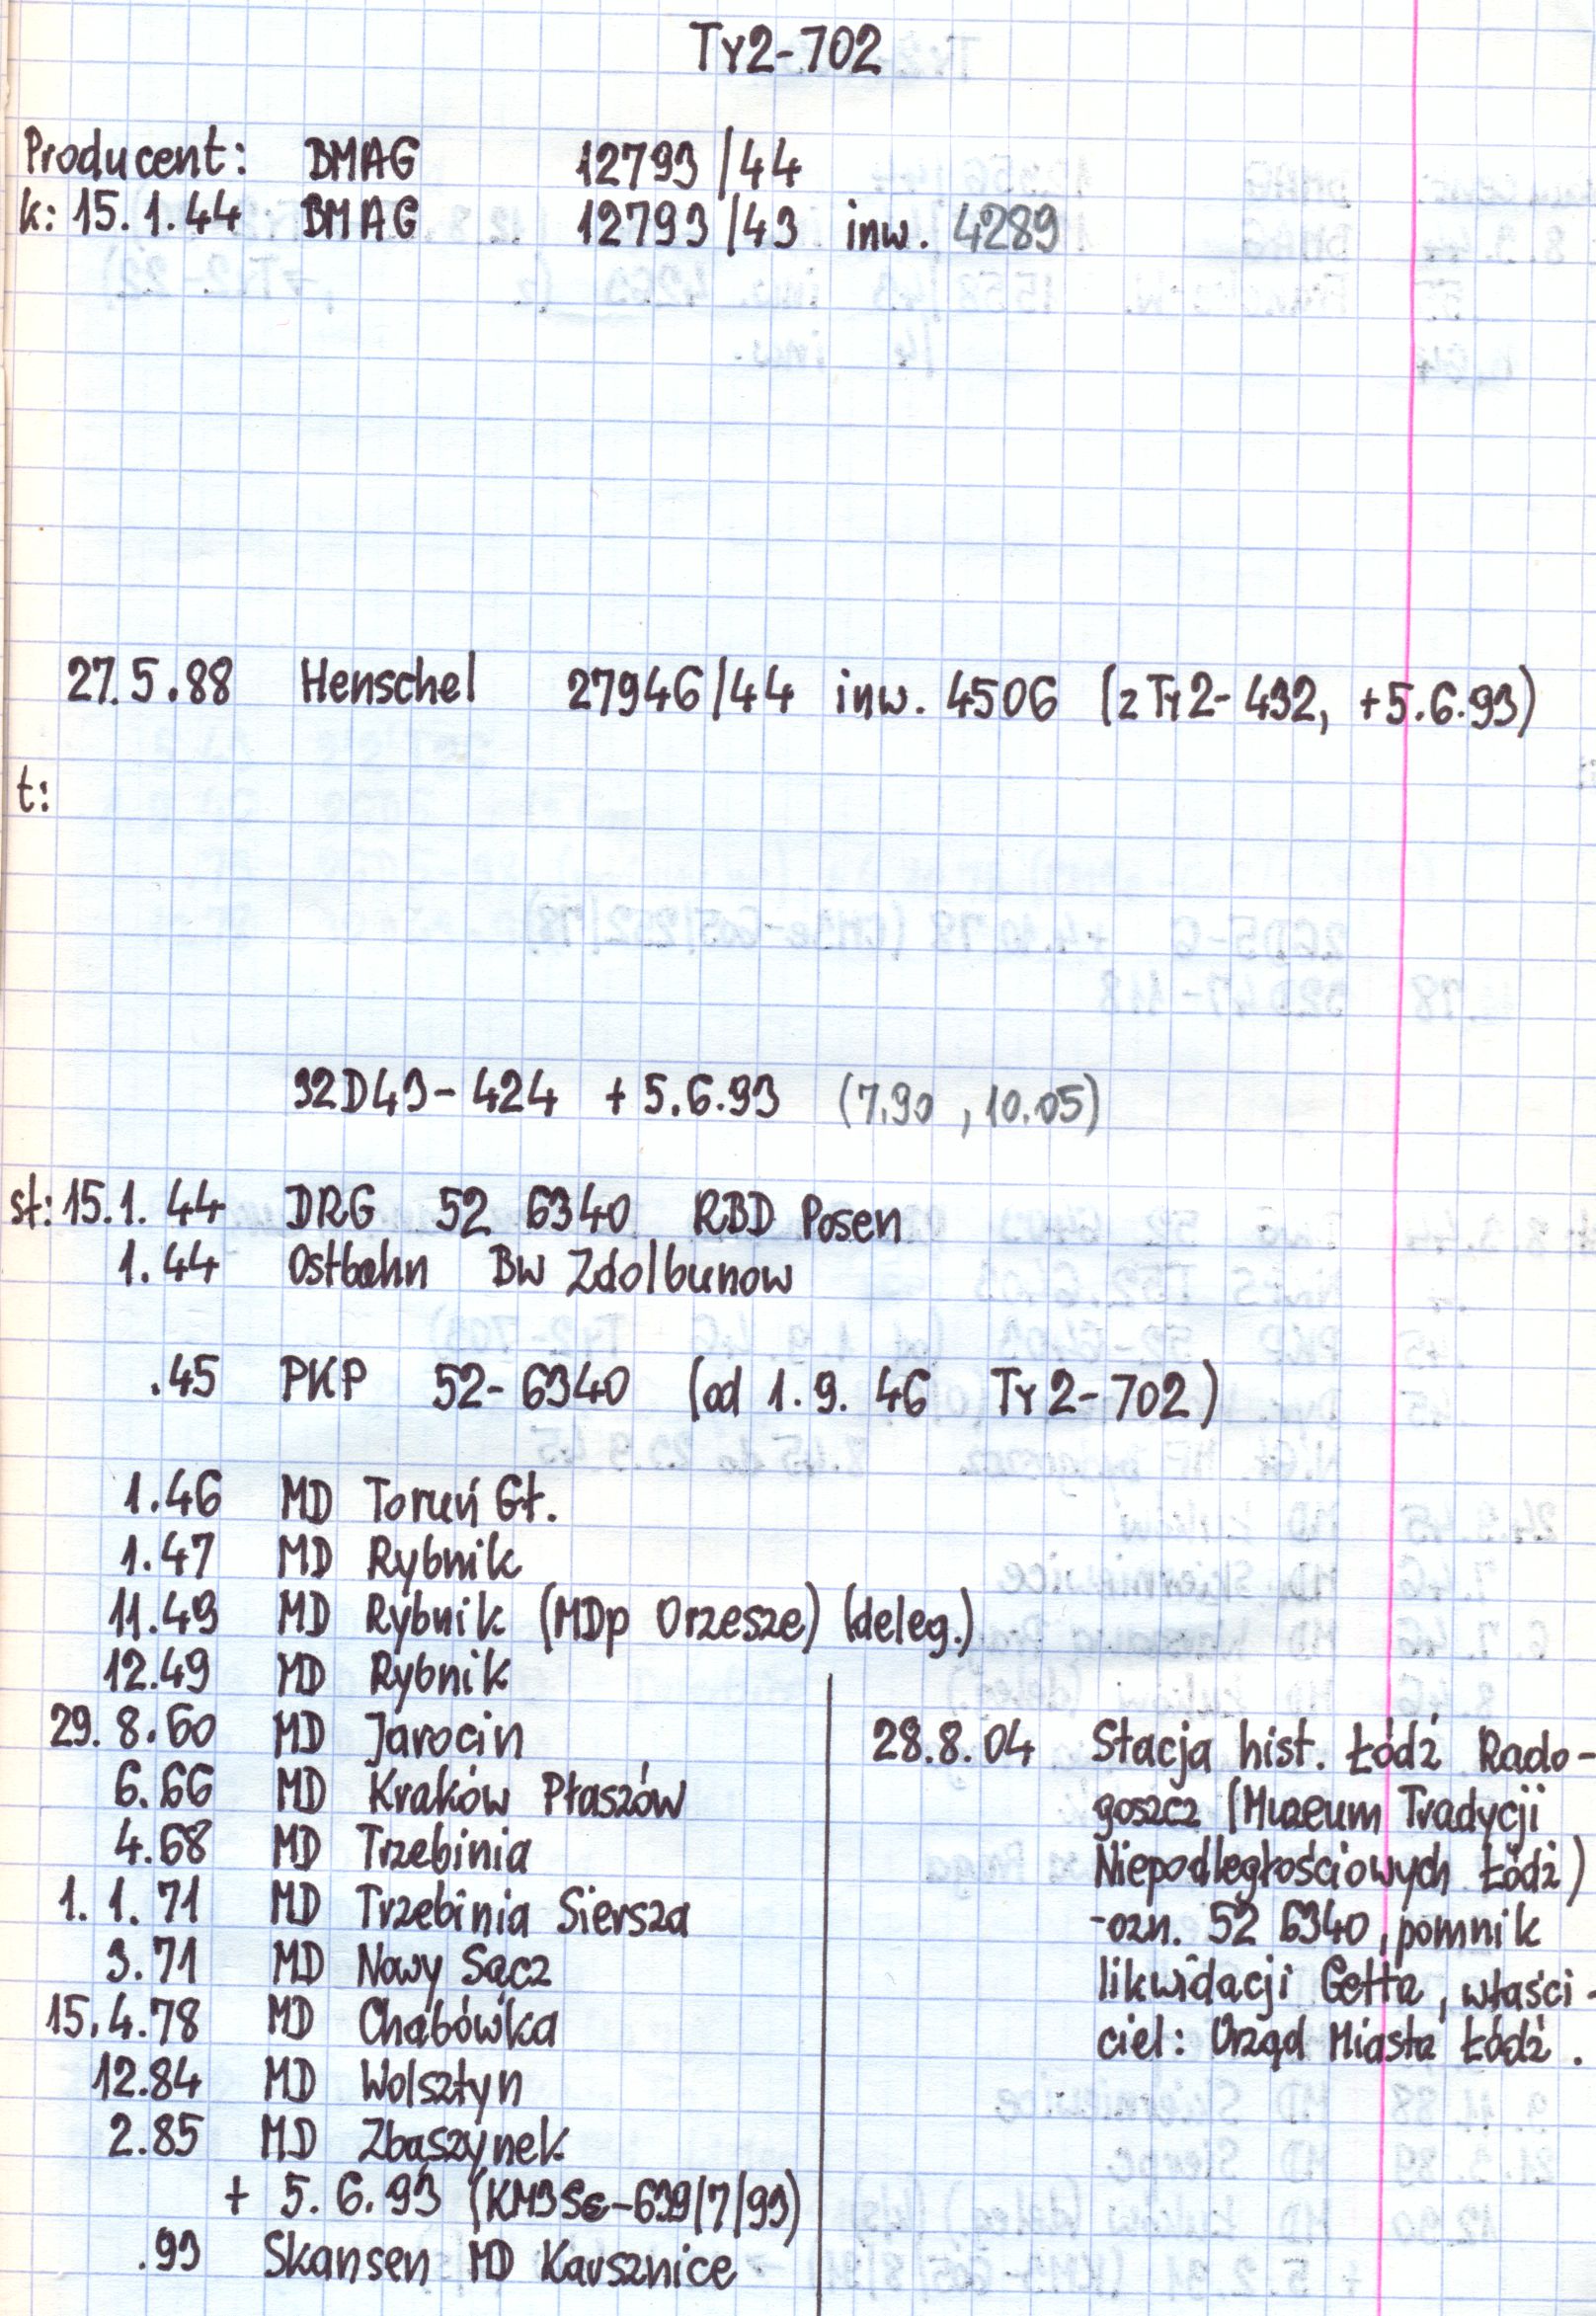 Ty2-702
Producent: BMAG 12793/44
k: 15.1.44 BMAG 12793/43 inw. 4289
27.5.88 Henschel 27946/44 inw. 4506 (z Ty2-432, +5.6.93)
t:
32D43-424 +5.6.93 (7.90, 10.05)
st: 15.1.44 DRG 52 6340 RBD Posen
1.44 Ostbahn Bw Zdolbunow
.45 PKP 52-6340 (od 1.9.46 Ty2-702)
1.46 MD Toruń Gł.
1.47 MD Rybnik
11.49 MD Rybnik (MDp Orzesze) (deleg.)
12.49 MD Rybnik
29.8.60 MD Jarocin
6.66 MD Kraków Płaszów
4.68 MD Trzebinia
1.1.71 MD Trzebinia Siersza
3.71 MD Nowy Sącz
15.4.78 MD Chabówka
12.84 MD Wolsztyn
2.85 MD Zbąszynek
+ 5.6.93 (KM3Se-639/7/93)
.93 Skansen MD Karsznice
28.8.04 Stacja hist. Łódź Rado-
goszcz (Muzeum Tradycji
Niepodległościowych Łódź)
-ozn. 52 6340, pomnik
likwidacji Getta, właści-
ciel: Urząd Miasta Łódź.